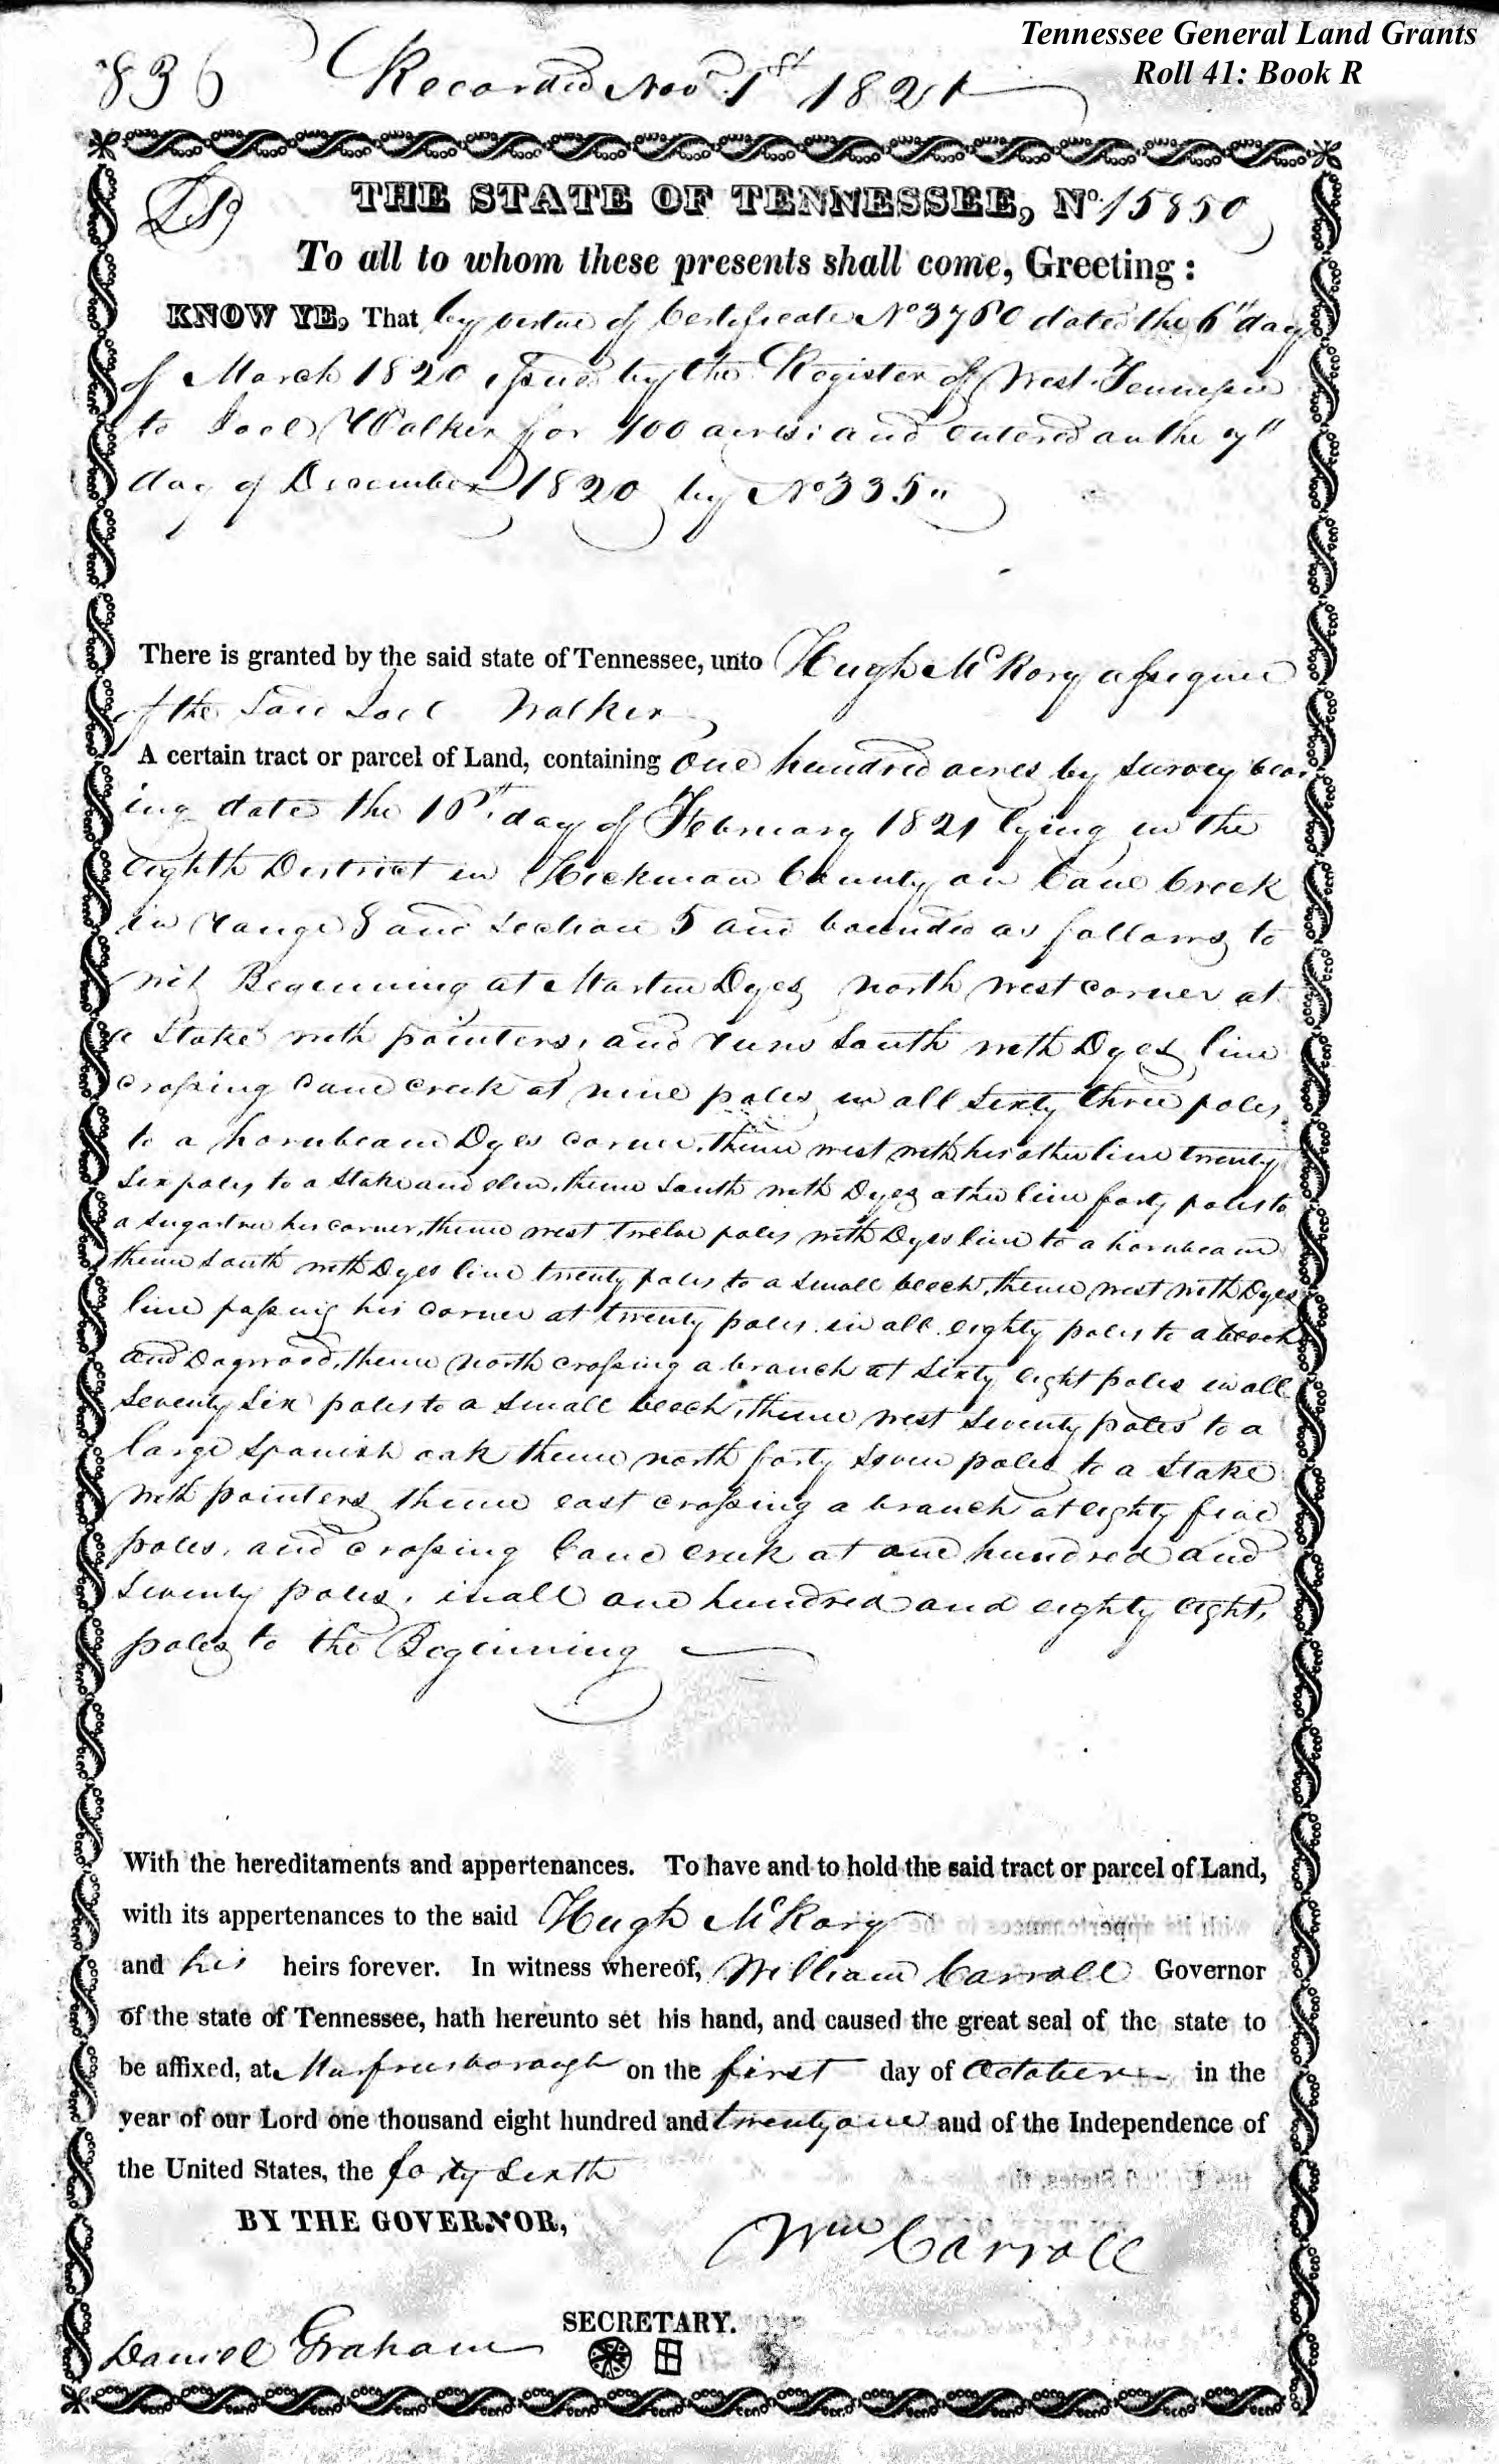 Tennessee General Land Grants
Roll 41: Book R
836 Recorded Nov.r 1st 1821
LS
THE STATE OF TENNESSEE, No. 15850
To all to whom these presents shall come, Greeting:
KNOW YE, That by virtue of Certificate No 3760 dated the 6th day
of March 1820 issued by the Register of West Tennessee
to Joel Walker for 100 acres; and entered on the 7th
day of December 1820 by No 335"
There is granted by the said state of Tennessee, unto Hugh McRory assignee
of the said Joel Walker
A certain tract or parcel of Land, containing One hundred acres by survey bear
ing date the 16th day of February 1821 lying in the
eighth District in Hickman County on Cane Creek
in range 8 and section 5 and bounded as follows, to
wit, Beginning at Martin Dyes, north west corner at
a stake with pointers, and runs south with Dyes line
crossing Cane Creek at nine poles in all sixty three poles,
to a hornbeam Dyes corner, thence west with his other line twenty
six poles, to a stake and elm, thence south with Dyes other line forty poles to
a sugartree his corner, thence west twelve poles with Dyes line to a hornbeam
thence south with Dyes line twenty poles to a small beech, thence west with Dyes
line passing his corner at twenty poles in all eighty poles to a beech
and Dogwood, thence north crossing a branch at sixty eight poles in all
seventy six poles to a small beech, thence west seventy poles to a
large spanish oak thence north forty seven poles to a stake
with pointers thence east crossing a branch at eighty five
poles, and crossing Cane creek at one hundred and
seventy poles, in all one hundred and eighty eight,
poles to the Beginning
With the hereditaments and appertenances. To have and to hold the said tract or parcel of Land,
with its appertenances to the said Hugh McRory
and his heirs forever. In witness whereof, William Carroll Governor
of the state of Tennessee, hath hereunto set his hand, and caused the great seal of the state to
be affixed, at Murfreesborough on the first day of October in the
year of our Lord one thousand eight hundred and twenty one and of the Independence of
the United States, the forty sixth
BY THE GOVERNOR,
Wm Carroll
SECRETARY.
Daniel Graham